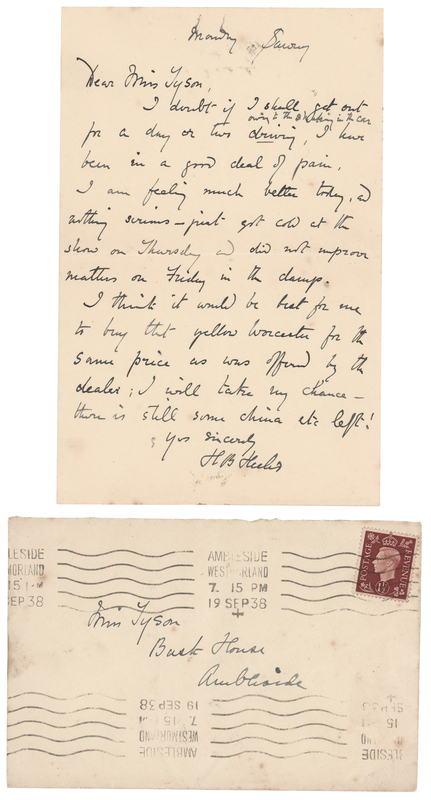 Monday Sawrey
Dear Miss Tyson,
I doubt if I shall get out
owing to the shaking in the car
for a day or two driving, I have
been in a good deal of pain.
I am feeling much better today, &
nothing serious – just got cold at the
show on Thursday & did not improve
matters on Friday in the damp.
I think it would be best for me
to buy that yellow Worcester for the
same price as was offered by the
dealer; I will take my chance –
there is still some china etc left!
Yrs sincerely
H B Heelis
AMBLESIDE
WESTMORLAND
7. 15 PM
19 SEP 38
BLESIDE
MORLAND
15
SEP 38
POSTAGE
REVENUE
1½
Miss Tyson
House
Ambleside
AMBLESIDE
WESTMORLAND
7. 15 PM
19 SEP 38
BLESIDE
15
SEP 38